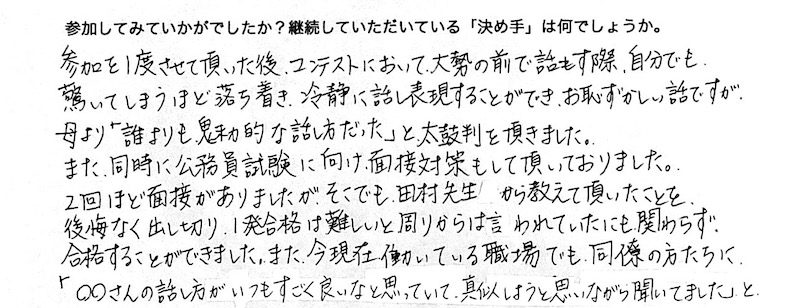 参加してみていかがでしたか？継続していただいている「決め手」は何でしょうか。
参加を1度させて頂いた後、コンテストにおいて、大勢の前で話をす際、自分でも、
驚いてしまうほど落ち着き、冷静に話し表現することができ、お恥ずかしい話ですが、
母より「誰よりも魅力的な話し方だった」と、太鼓判を頂きました。
また、同時に公務員試験に向け、面接対策もして頂いておりました。
2回ほど面接がありましたが、そこでも、田村先生 から教えて頂いたことを、
後悔なく出し切り、1発合格は難しいと周りからは言われていたにも関わらず、
合格することができました。また、今現在働いている職場でも、同僚の方たちに、
「〇〇さんの話し方がいつもすごく良いなと思っていて、真似しようと思いながら聞いてました」と、